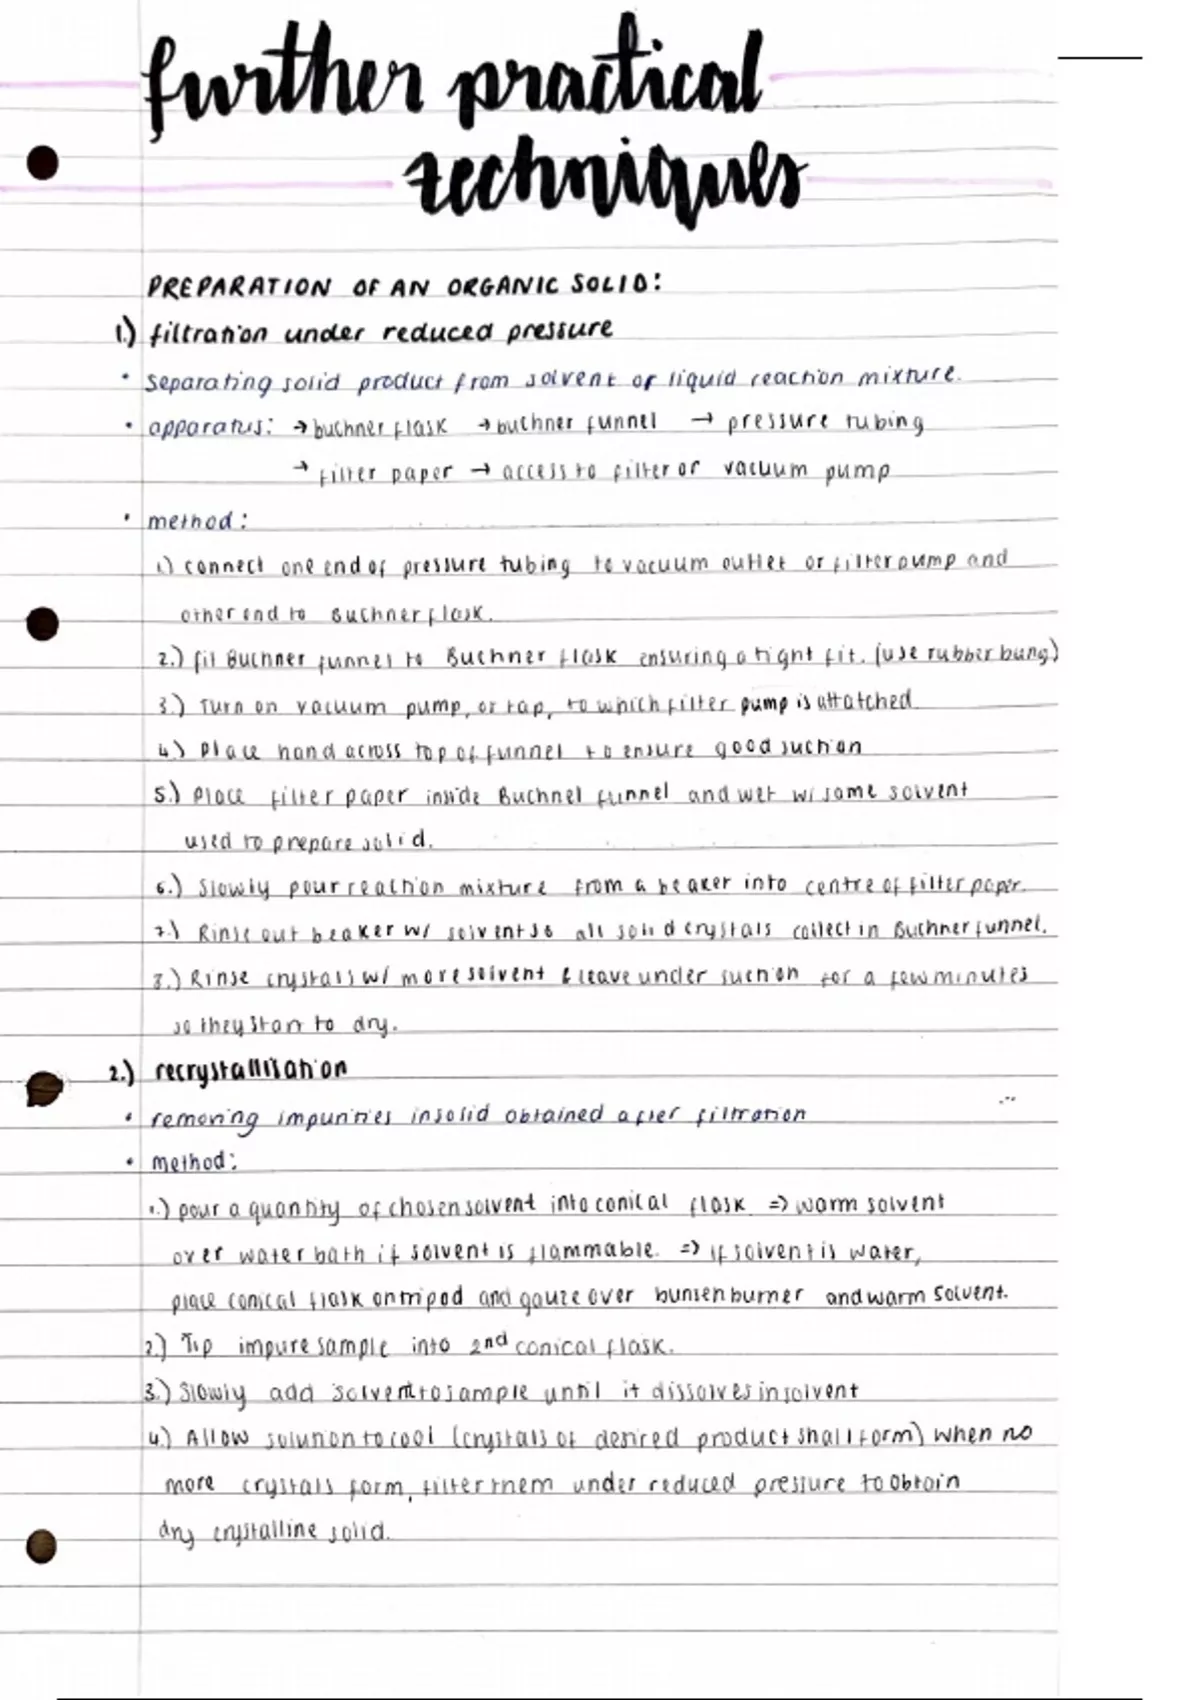 further practical
techniques
PREPARATION OF AN ORGANIC SOLID:
1.) filtration under reduced pressure
• separating solid product from solvent or liquid reaction mixture.
• apparatus: → buchner flask → buchner funnel → pressure tubing
→ filter paper → access to filter or vacuum pump
• method:
1.) connect one end of pressure tubing to vacuum outlet or filter pump and
other end to Buchner flask.
2.) fit Buchner funnel to Buchner flask ensuring a tight fit. (use rubber bung)
3.) Turn on vacuum pump, or tap, to which filter pump is attatched.
4.) Place hand across top of funnel to ensure good suction
5.) Place filter paper inside Buchner funnel and wet w/ some solvent
used to prepare solid.
6.) Slowly pour reaction mixture from a beaker into centre of filter paper.
7.) Rinse out beaker w/ solvent so all solid crystals collect in Buchner funnel.
8.) Rinse crystals w/ more solvent & leave under suction for a few minutes
so they start to dry.
2.) recrystallisation
• removing impurities in solid obtained after filtration
• method:
1.) pour a quantity of chosen solvent into conical flask => warm solvent
over water bath if solvent is flammable. => if solvent is water,
place conical flask on tripod and gauze over bunsen burner and warm solvent.
2.) Tip impure sample into 2nd conical flask.
3.) Slowly add solvent to sample until it dissolves in solvent
4.) Allow solution to cool (crystals of desired product shall form) when no
more crystals form, filter them under reduced pressure to obtain
dry crystalline solid.